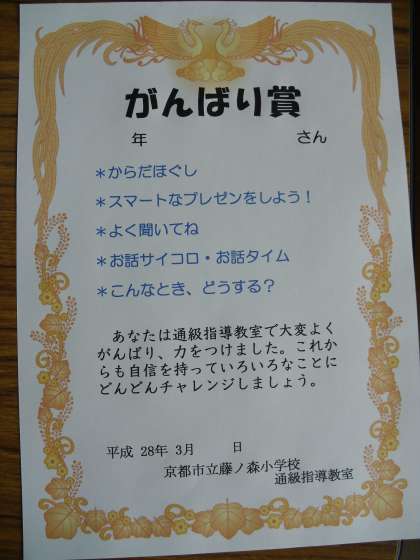 がんばり賞
年 さん
＊からだほぐし
＊スマートなプレゼンをしよう！
＊よく聞いてね
＊お話サイコロ・お話タイム
＊こんなとき、どうする？
あなたは通級指導教室で大変よく
がんばり、力をつけました。これか
らも自信を持っていろいろなことに
どんどんチャレンジしましょう。
平成 28年 3月 日
京都市立藤ノ森小学校
通級指導教室